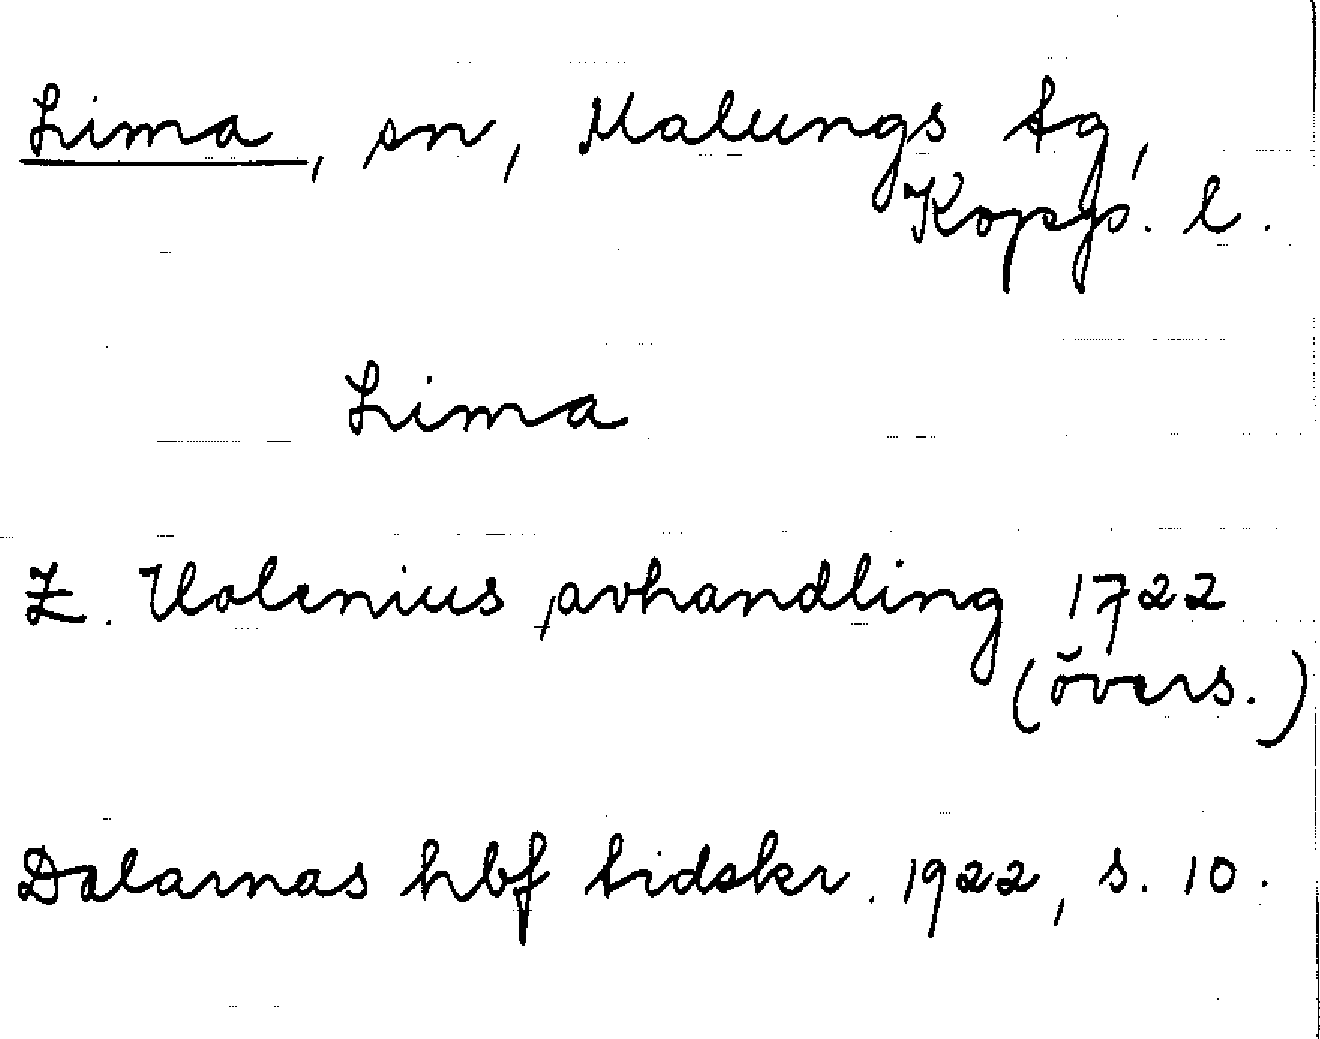 Lima, sn, Malungs tg,
Kopp. l.
Lima
Z. Holenius, avhandling 1722
(övers.)
Dalarnas hbf tidskr. 1922, s. 10.